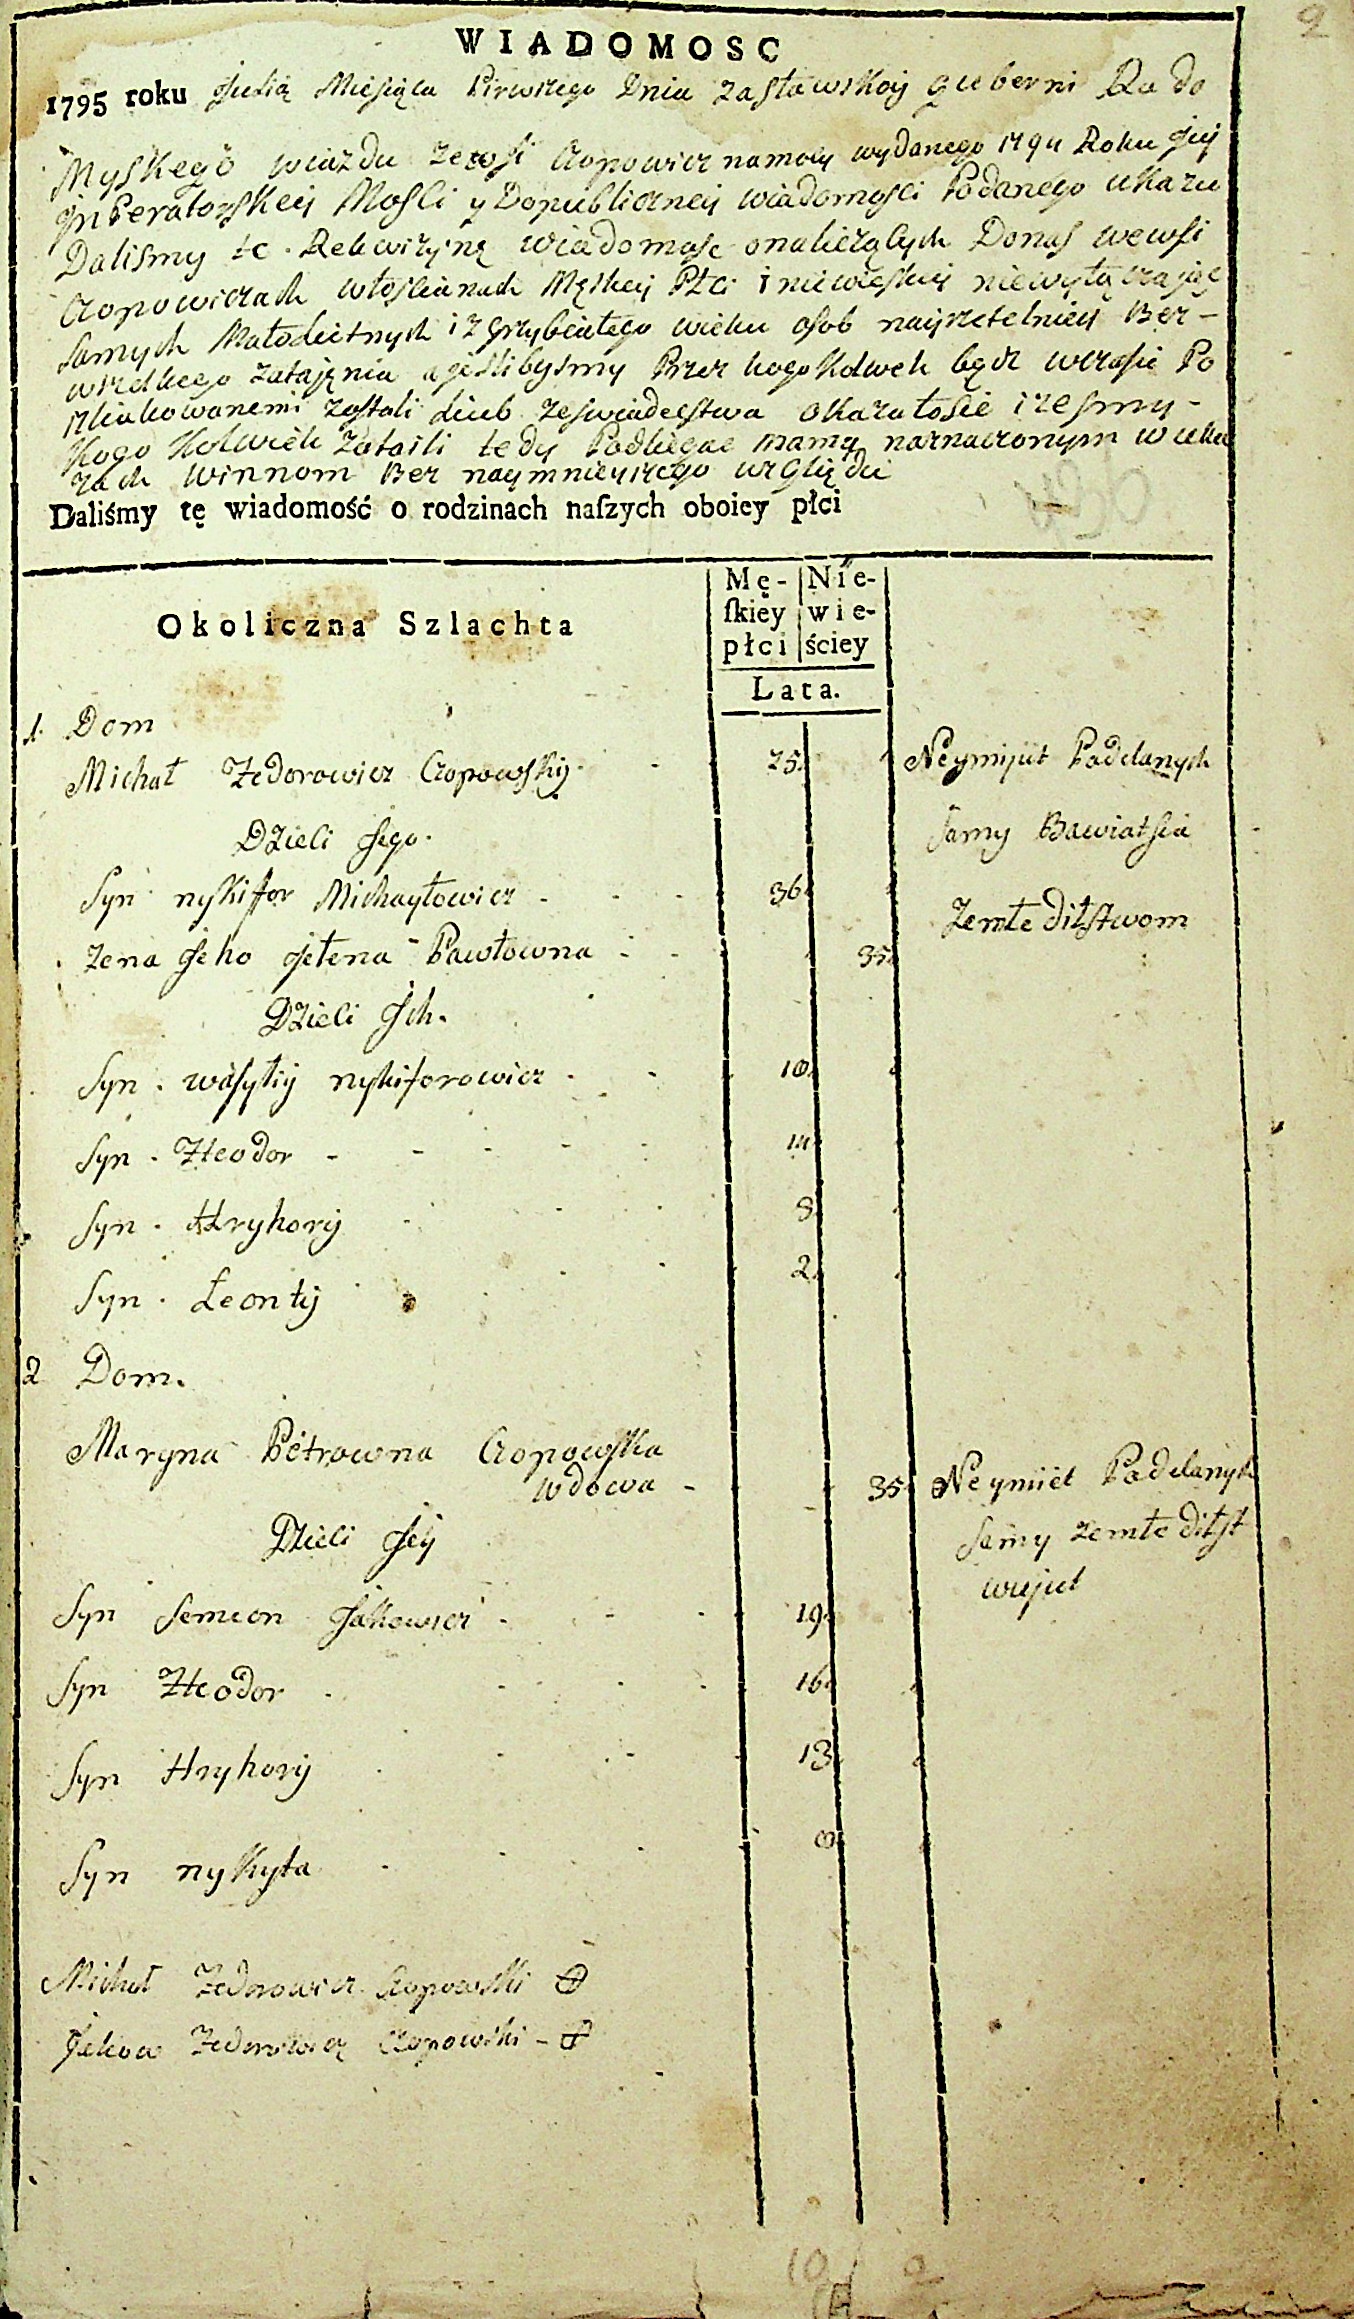 2
WIADOMOSC
1795 roku Julią Miesiąca Pirwszego Dnia Zasławskoy guberni Rado
Myskego wiazdu ze wsi Czopowicz na mocy wydanego 1794 Roku Jey
Jnperatorskey Mosci y Dopubliczney wiadomosci Podanego ukazu
Dalismy te Rewizyną wiadomosc onaliezących Donas wewsi
Czopowiczach włoscianach Męskey Płci i niewieskiey niewyłączając
samych Małolietnych i zgrzybiałego wieku osob nayrzetelniey Ber-
wszelkiego zatajęnia a jeslibysmy Przez kogo Kolwek będz wczasie Po
szlakowanemi zostali Liub ze swiadectwa okazałosie izesmy-
Kogo Kolwiek zataili tedy Podliegac mamy naznaczonym w uka
zach winnom Bez naymnieyszego względu
Daliśmy tę wiadomość o rodzinach naſzych oboiey płci
Okoliczna Szlachta
Mę- Nie-
ſkiey wie-
płci ściey
Lata.
1. Dom
Michał Zedorowicz Czopowskiy 75 Neymijut Padelanych
Dzieci Jego samy Bawiatsia
Syn nykifor Michayłowicz 36 Zemłe diłstwom
Zena Jeho Jełena Pawłowna 35
Dzieci Jch.
Syn wasyliy nykiforowicz 10
Syn Zteodor 14
Syn Hryhoriy 8
Syn Leontiy 2
2 Dom.
Maryna Petrowna Czopowska
wdowa 35 Neymiiet Padelanych
Dzieci Jey samy zemłe diłst
wujut
Syn Semion Jakowicz 19
Syn Zteodor 16
Syn Hryhoriy 13
Syn nykyta
Michał Zedorowicz Czopowski
Jakow Zedorowicz Czopowski
10